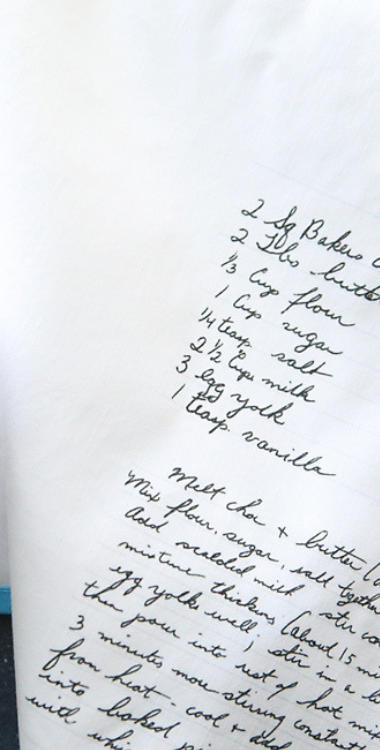 2 Sq Bakers
2 Tbs butte
1/3 Cup flour
1 Cup sugar
1/4 teasp. salt
2 1/2 Cups milk
3 egg yolk
1 teasp vanilla
Melt choc + butter
Mix flour, sugar, salt togeth
Add scalded milk, stir co
mixture thickens (about 15 mi
egg yolks well, stir in a
then pour into rest of hot mix
3 minutes more stirring constan
from heat - cool + add
into baked pi
with whi